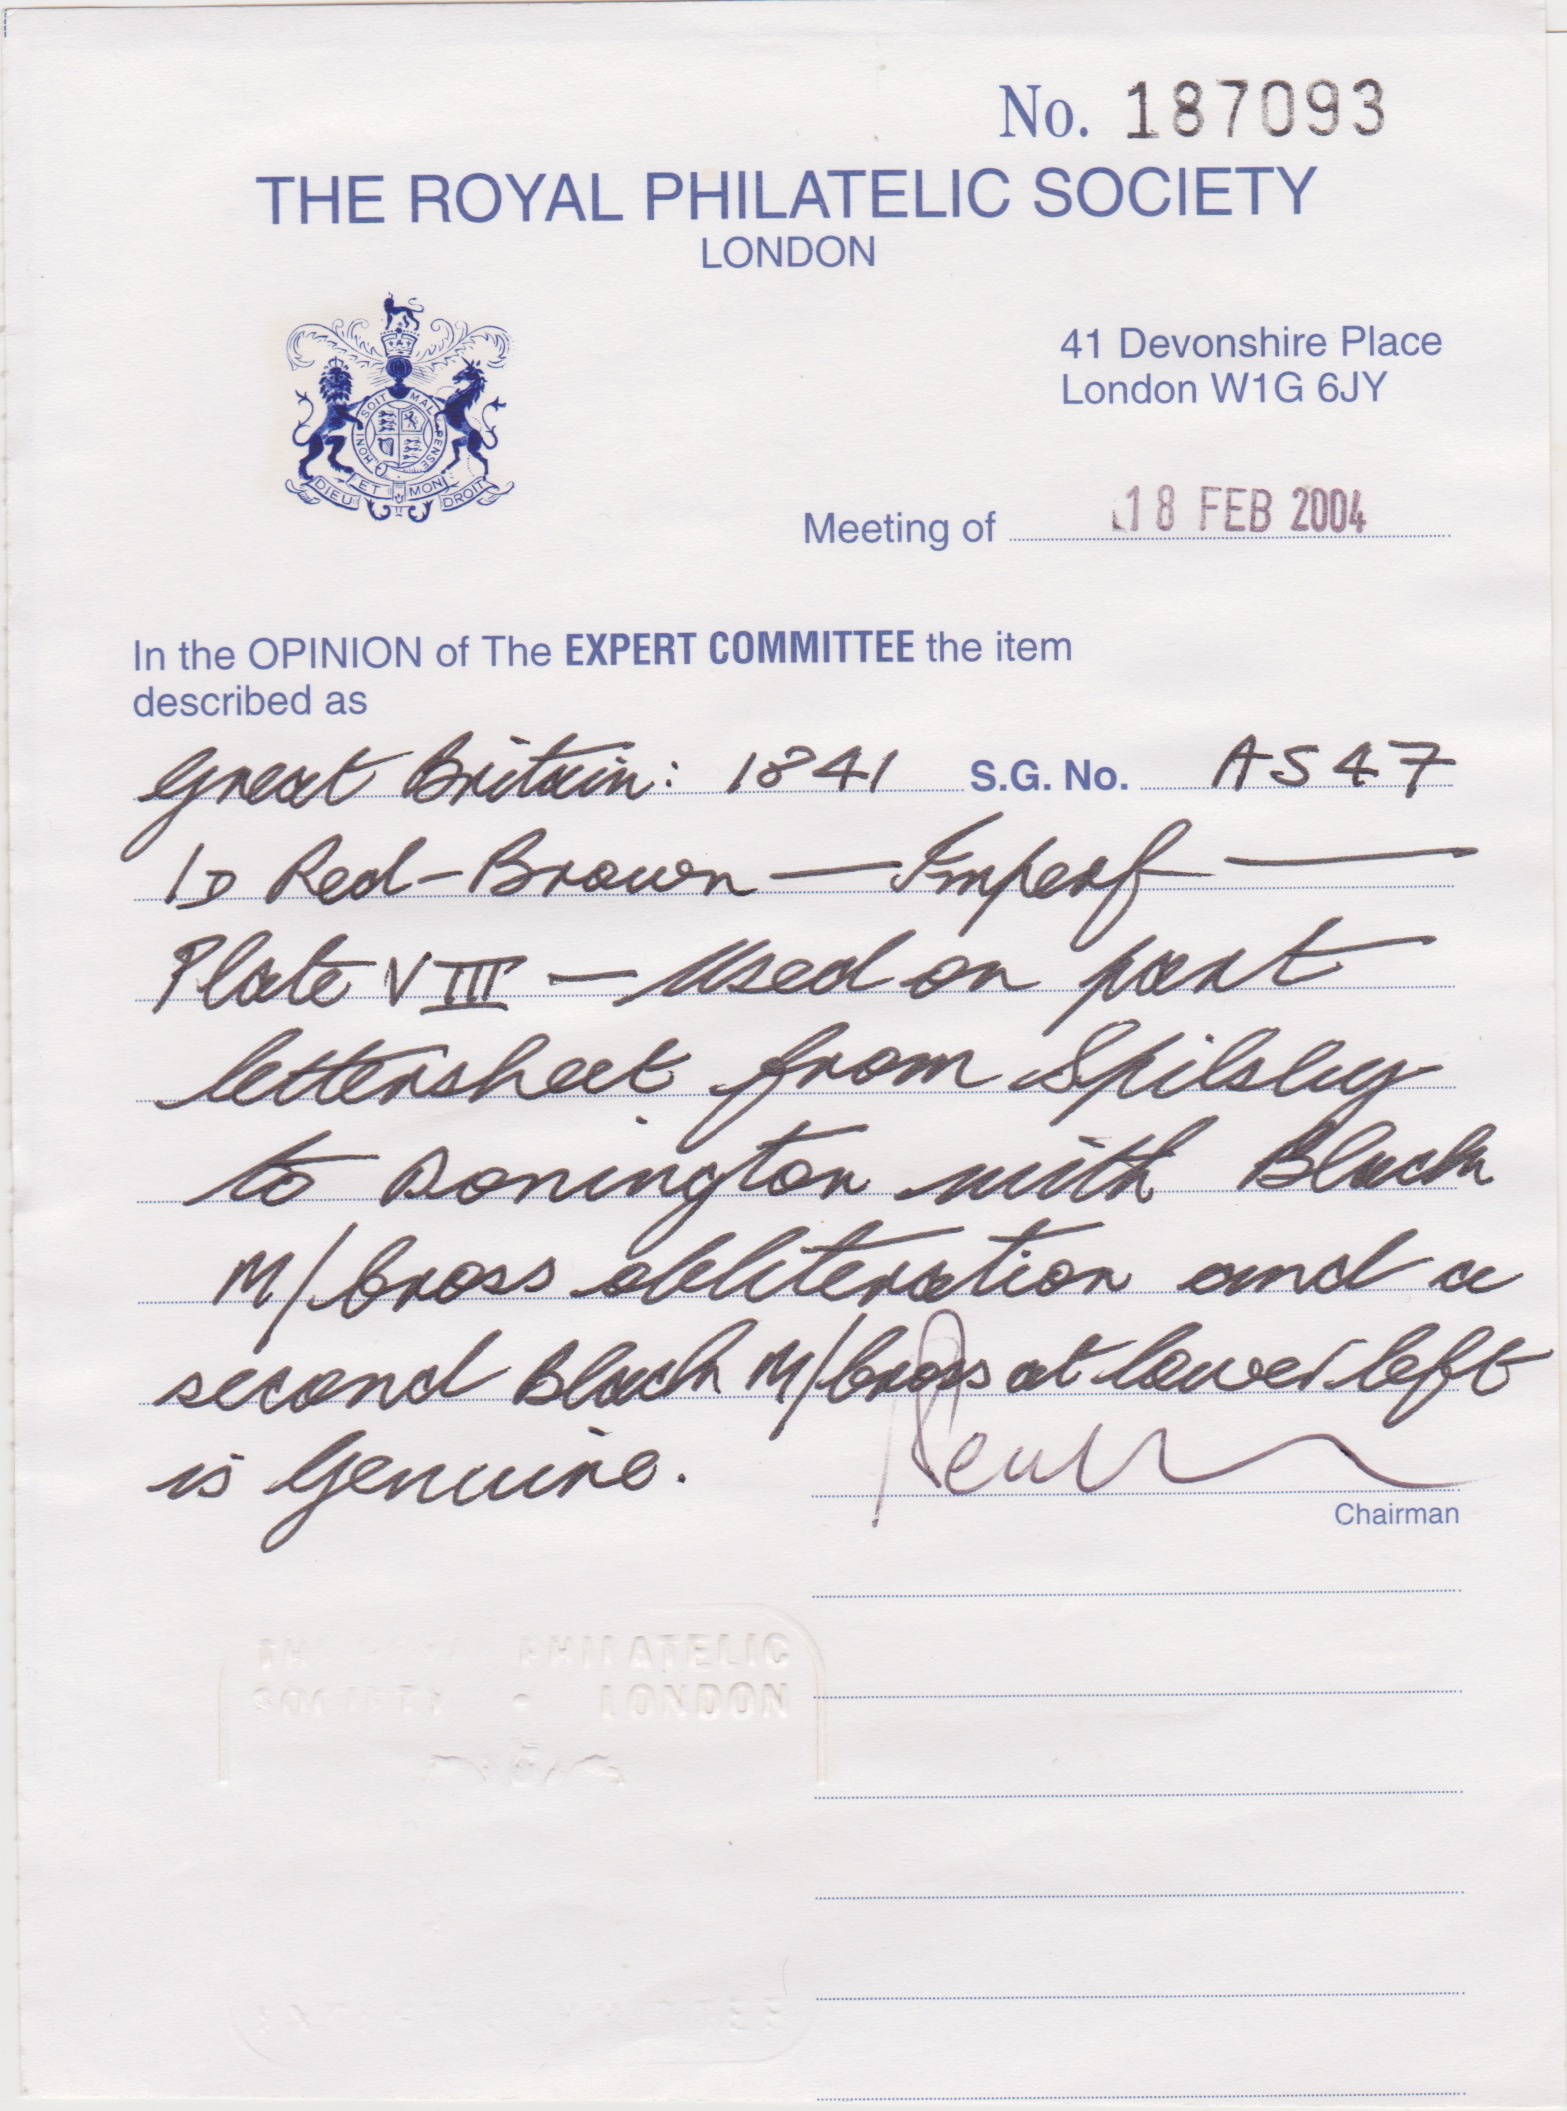 No. 187093
THE ROYAL PHILATELIC SOCIETY
LONDON
HONI SOIT MAL PENSE
DIEU ET MON DROIT
41 Devonshire Place
London W1G 6JY
Meeting of 18 FEB 2004
In the OPINION of The EXPERT COMMITTEE the item
described as
Great Britain: 1841 S.G. No. AS47
1D Red-Brown — Imperf —
Plate VIII — Used on part
lettersheet from Spilsby
to Donington with Black
M/Cross obliteration and a
second Black M/Cross at lower left
is Genuine.
Chairman
PHILATELIC
SOCIETY • LONDON